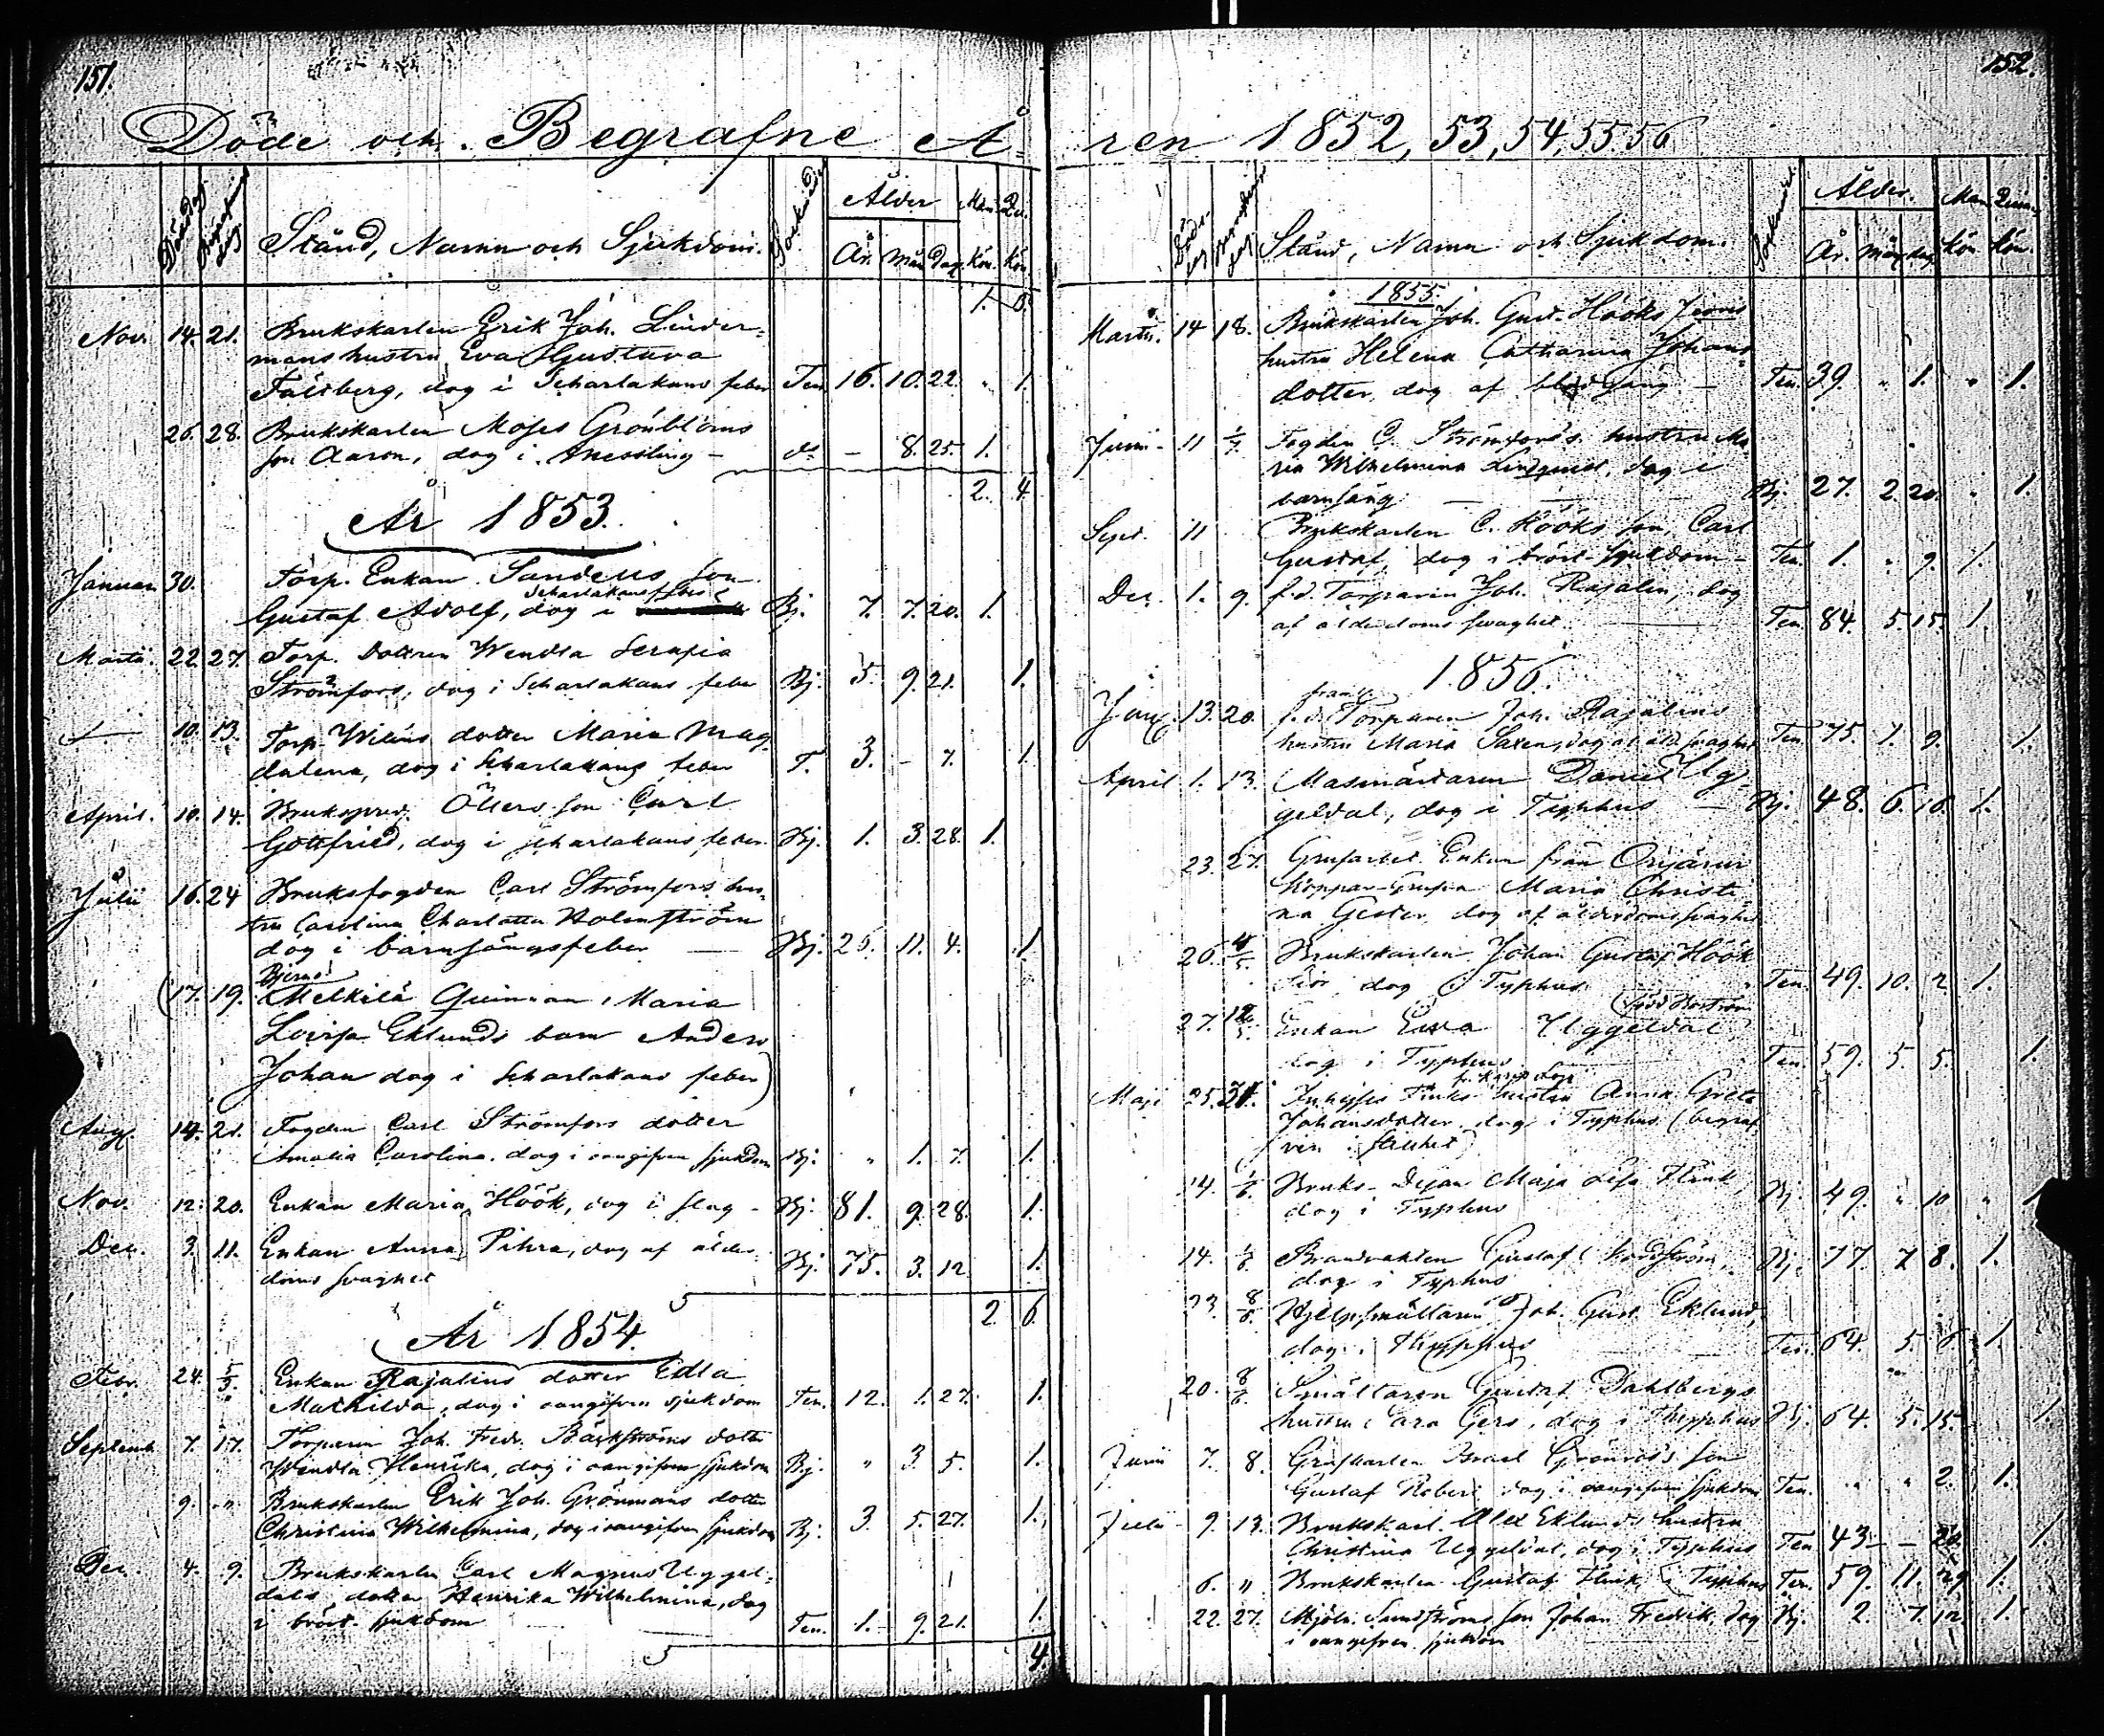 151.
Döde och Begrafne Å-
Dödsdag Begrafningsdag Stånd, Namn och Sjukdom. Ålder Man Qv.
År. Mån Dag Kön. Kön
1. 3.
Nov. 14. 21. Brukskarlen Erik Joh. Linder-
mans hustru Eva Gustava
dog i Scharlakans feber Ten. 16. 10. 22. " 1.
26. 28. Brukskarlen Moses Grönbloms
son Aaron, dog i messling - do - 8. 25. 1.
2. 4
År 1853.
Januari 30. Torp. Enkan Sandells son
Scharlakansfeber
Gustaf Adolf, dog i Bj. 7. 7. 20. 1.
Martii. 22. 27. Torp. Dottren Wendla Serafia
Strömfors, dog i Scharlakans feber Bj. 5. 9. 21. 1.
10. 13. Torp. Wiléns dotter Maria Mag-
dalena, dog i Scharlakans feber T. 3. - 7. 1.
April. 10. 14. Brukspred. Öllers son Carl
Gottfried, dog i scharlakans feber. Bj. 1. 3. 28. 1.
Julii 16. 24 Bruksfogden Carl Strömfors hus-
tru Carolina Charlotta Holmström
dog i barnsängsfeber — Bj. 25. 11. 4. 1.
Bjerno
(17. 19. Melkilä Quinnan, Maria
Lovisa Eklunds barn Anders
Johan dog i Scharlakans feber)
Aug. 14. 21. Fogden Carl Strömfors dotter
Amalia Carolina. dog i oangifven sjukdom Bj. " 1. 7. 1.
Nov. 12. 20. Enkan Maria Höök, dog i slag - Bj. 81. 9. 28. 1.
Dec. 3. 11. Enkan Anna Pihra, dog af ålder-
doms svaghet Bj. 75. 3. 12 1.
2. 6.
År 1854.
Febr. 24. 5/3. Enkan Rajalins dotter Edla
Mathilda, dog i oangifven sjukdom Ten. 12. 1. 27. 1.
Septemb. 7. 17. Torparen Joh. Fredr. Bäckströms dotter
Wendla Henrika, dog i oangifven sjukdom Bj. " 3. 5. 1.
9. " Brukskarlen Erik Joh. Grönmans dotter
Christina Wilhelmina, dog i oangifven sjukdom Bj. 3. 5. 27. 1.
Dec. 4. 9. Brukskarlen Carl Magnus Uggel-
dals dotter Henrika Wilhelmina, dog
i bröst-sjukdom Ten. 1. 9. 21. 1.
4.
152.
ren 1852, 53, 54, 55. 56
Stånd, Namn och Sjukdom. Ålder. Man Quin
År. Mån dag Kön Kön.
1855.
Martii. 14 18. Brukskarlen Joh. Gust. Hööks
hustru Helena Catharina Johans
dotter, dog af blodgång — Ten. 39. " 1. " 1.
Junii - 11 1/7 Fogden C. Strömfors's hustru Ma-
ria Wilhelmina Lindquist, dog i
barnsäng — Bj. 27. 2. 20. " 1.
Sept. 11 Brukskarlen C. Hööks son, Carl
Gustaf, dog i bröst-sjukdom - Ten. 1. " 9. 1.
Dec. 1. 9. f.d. Torparen Joh. Rajalin, dog
af ålderdoms svaghet. — Ten. 84. 5. 15. 1. "
1856.
Jan. 13. 20. f.d. Torparen Joh. Rajalins
hustru Maria Saxen, dog af åld. svaghet Ten. 75. 1. 9. 1.
April 1. 13. Masmästaren Daniel Ug-
geldal, dog i Typhus — Bj. 48. 6. 10. 1.
23. 27. Grufarbet. Enkan från Orijärvi
Koppar-Grufva Maria Christi-
na dog af ålderdomssvaghet
26. 4/5. Brukskarlen Johan Gustaf Höök
dog i Typhus Ten. 49. 10. 2 1.
27. Enkan Eva Uggeldal
dog i Typhus Ten. 59. 5. 5. 1.
Maji 25. Inhyses Finks hustru Anna Greta
Johansdotter dog i Typhus (begraf-
ven i
14. 1/6. Bruks-Dejan Maja Lisa Flink,
dog i Typhus Bj. 49. " 10 " 1.
14. 1/6. Brandvakten Gustaf Nordström, Bj. 77. 7 8. 1.
dog i Typhus
23. 8/6. Hjelpsmältaren Joh. Gust. Eklund,
dog i Thyphus Ten. 64. 5. 8 1.
20. 8/6. Smältaren Gustaf Dahlbergs
hustru Cara Gers, dog i Thyphus Bj. 64. 5. 15. 1.
Junii 7. 8. Grufkarlen Israel Grönros's son
Gustaf Robert dog i oangifven sjukdom Ten. " " 2. 1.
Julii - 9. 13. Brukskarl. Eklunds hustru
Christina Uggeldal, dog i Typhus Ten 43 - - 20. 1.
6. " Brukskarlen Gustaf Flink, i Typhus Ten. 59. 11. 29 1.
22. 27. Mjöln. Sundströms son Johan Fredrik, dog Bj. 2. 7. 12. 1.
i oangifven sjukdom